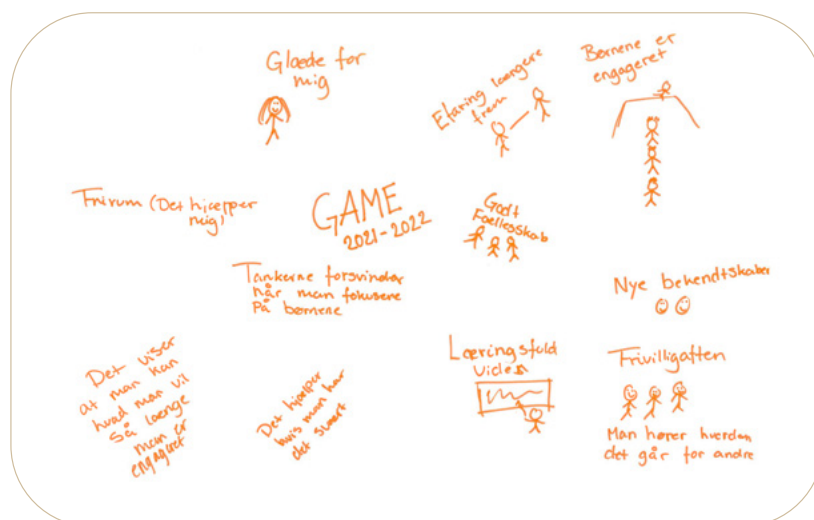 Glæde for
mig
Efaring længere
frem
Børnene er
engageret
Frirum (Det hjælper
mig)
GAME
2021-2022
Godt
Faellesskab
Tankerne forsvinder
når man fokusene
På børnene
Nye bekendtskaber
Det viser
at man kan
hvad man vil
Så længe
man er
engageret
Det hjælper
hvis man har
det svært
Læringsfuld
viden
Frivilligaften
Man hører hverdan
det går for andre